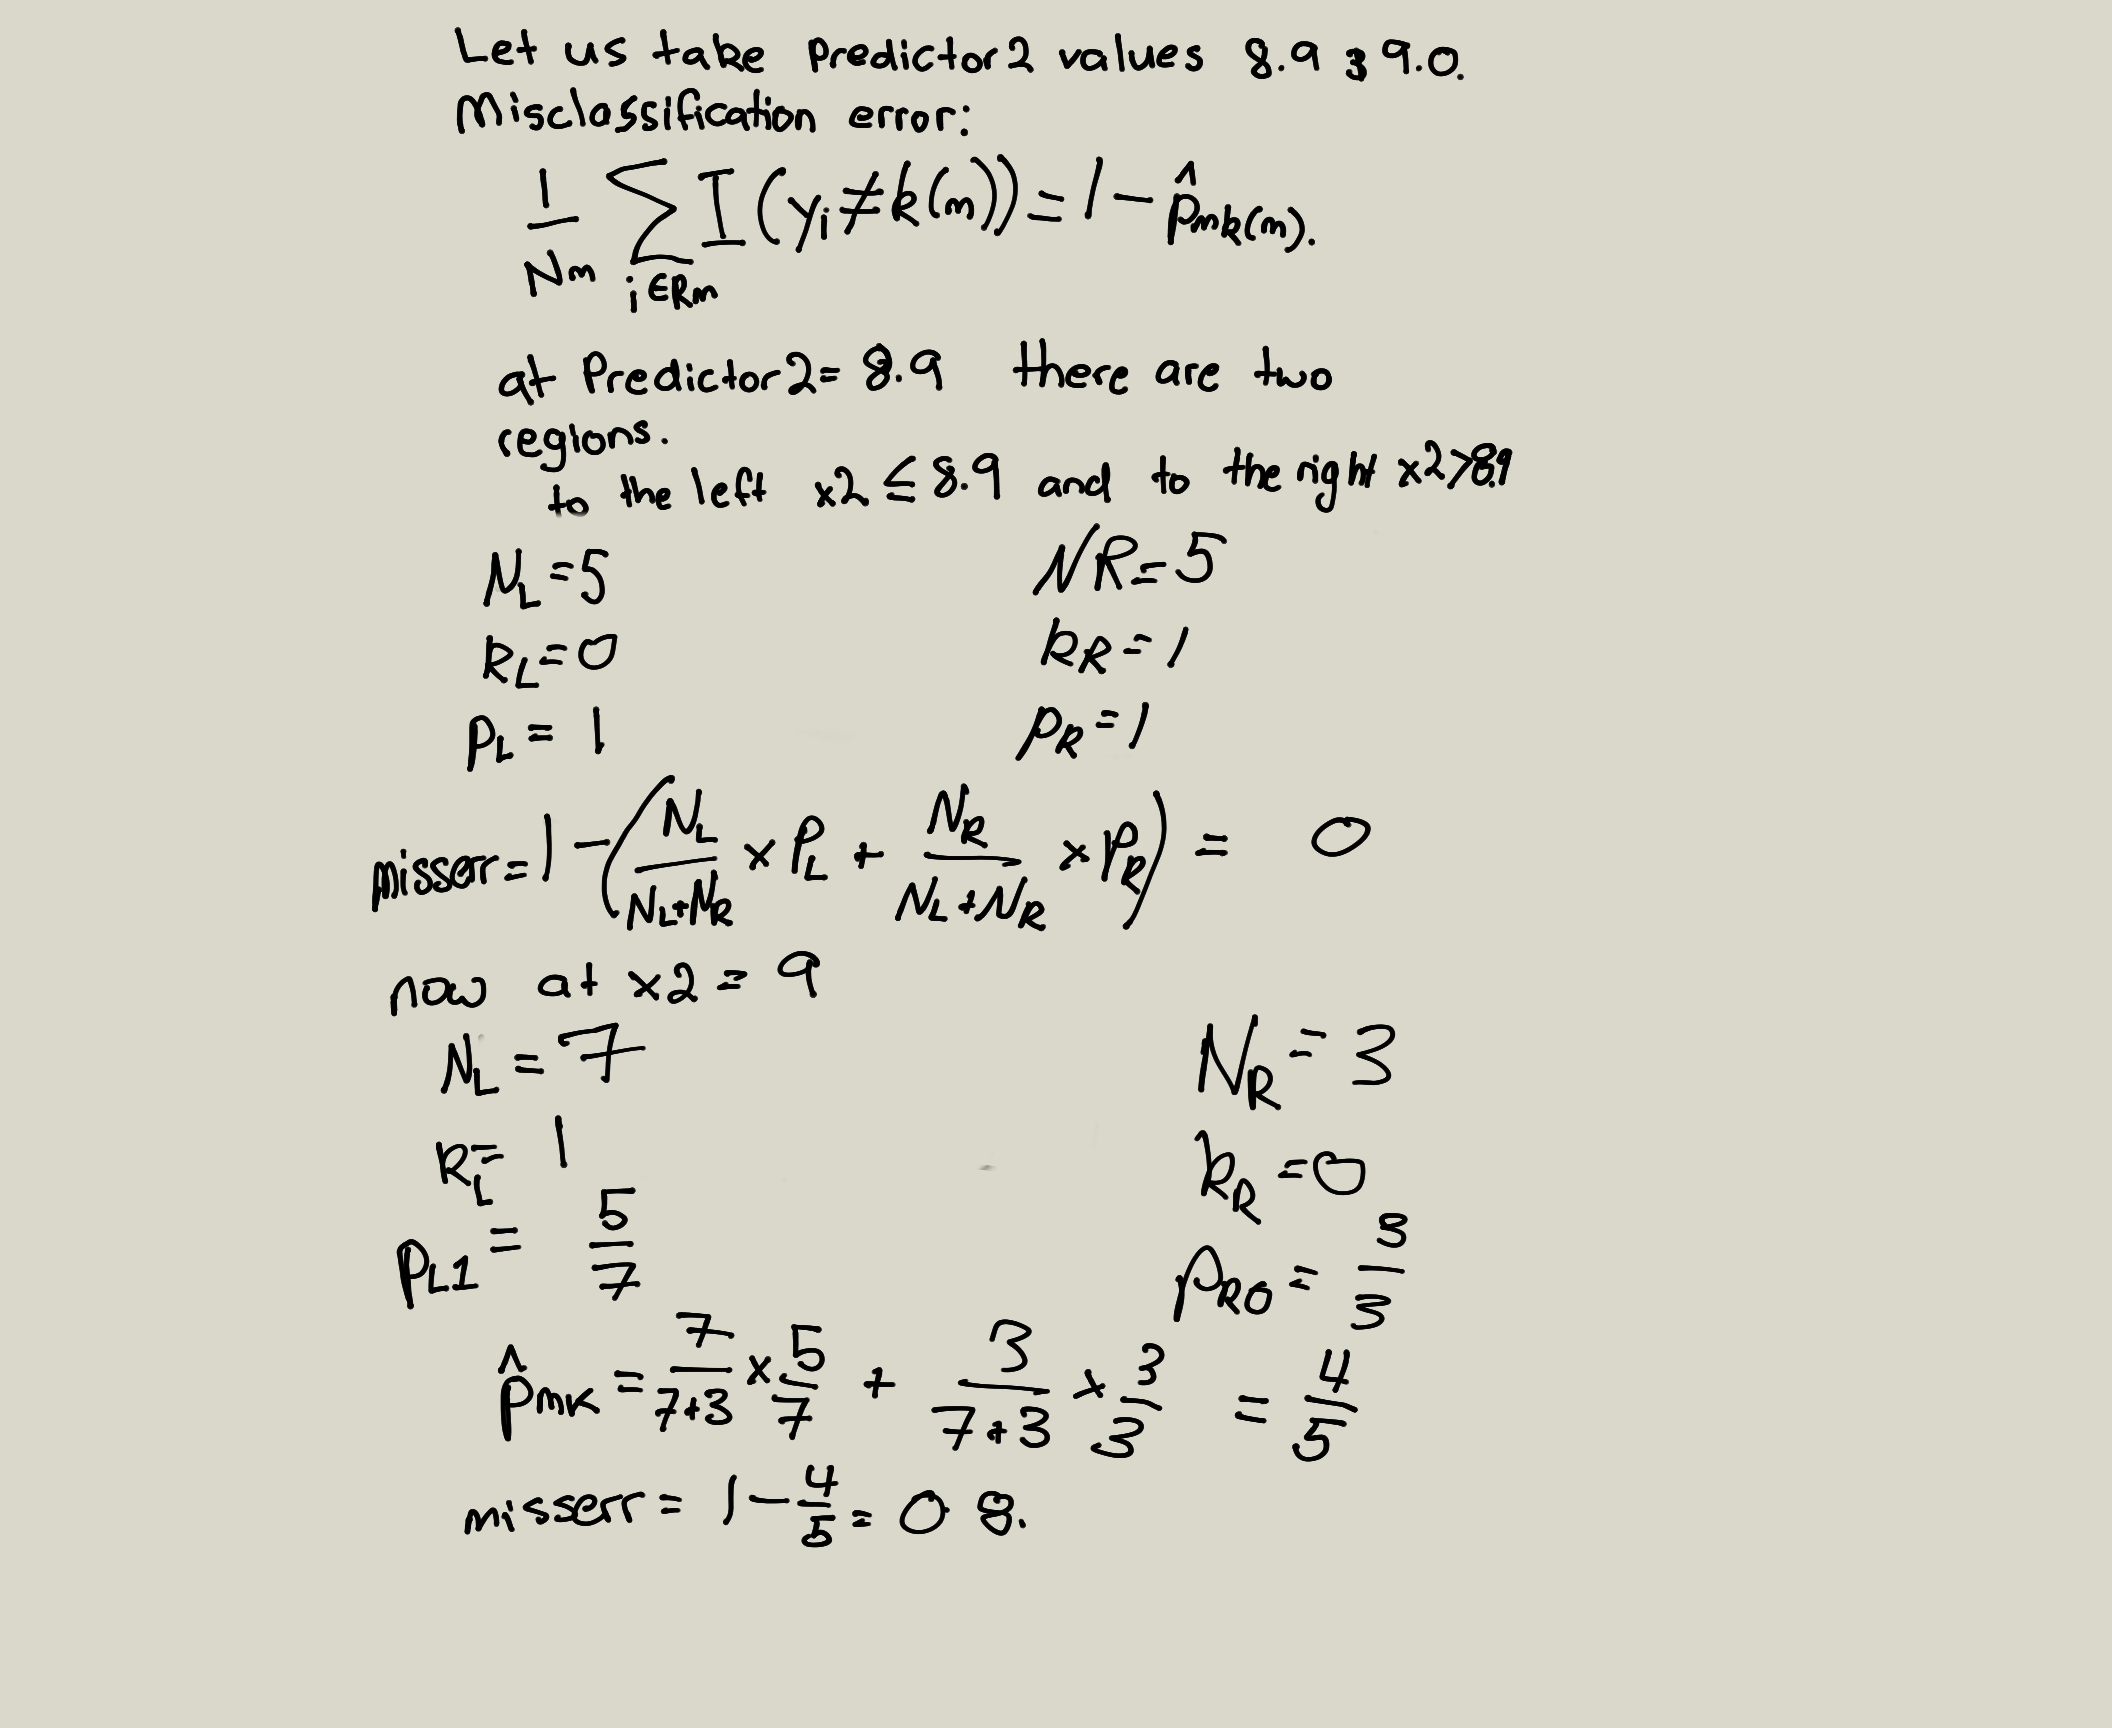 Let us take Predictor2 values 8.9 & 9.0.
Misclassification error:
1/Nm ∑ i∈Rm I(yi≠k(m)) = 1 - p̂mk(m).
at Predictor2= 8.9 there are two
regions.
to the left x2 ≤ 8.9 and to the right x2>8.9
NL=5 NR=5
kL=0 kR=1
PL= 1 PR=1
misserr=1-(NL/(NL+NR) × PL + NR/(NL+NR) × PR) = 0
now at x2 = 9
NL = 7 NR = 3
kL= 1 kR=0
PL1 = 5/7 PR0= 3/3
p̂mk = 7/(7+3) × 5/7 + 3/(7+3) × 3/3 = 4/5
misserr = 1-4/5 = 0 8.